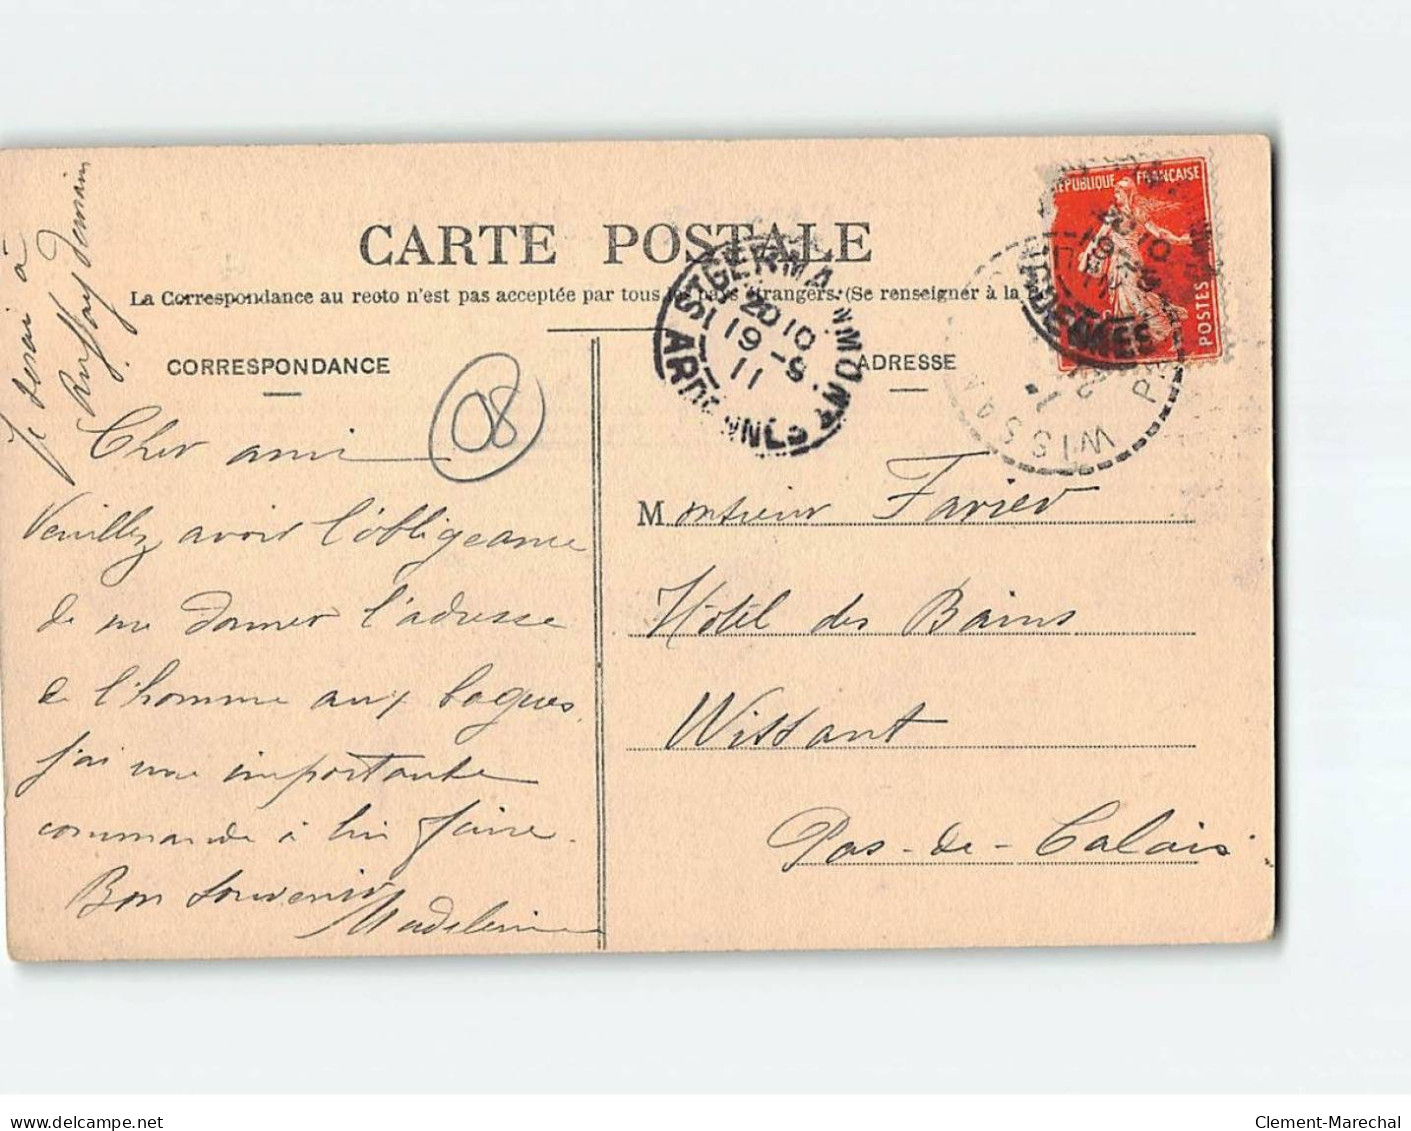 CARTE POSTALE
La Correspondance au recto n'est pas acceptée par tous les pays étrangers. (Se renseigner à la
CORRESPONDANCE
ADRESSE
Je serai à
demain
08
Cher ami
Veuillez avoir l'obligeance
de me donner l'adresse
de l'homme aux bagues,
j'ai une importante
commande à lui faire.
Bon souvenir
Madeleine
Monsieur Farier
Hôtel des Bains
Wissant
Pas-de-Calais
REPUBLIQUE FRANÇAISE
POSTES
ST GERMAINMONT
20 10
19 -9
11
ARDENNES
20 10
19 -9
11
ARDENNES
WISSAN
Clement-Marechal
delcampe.net